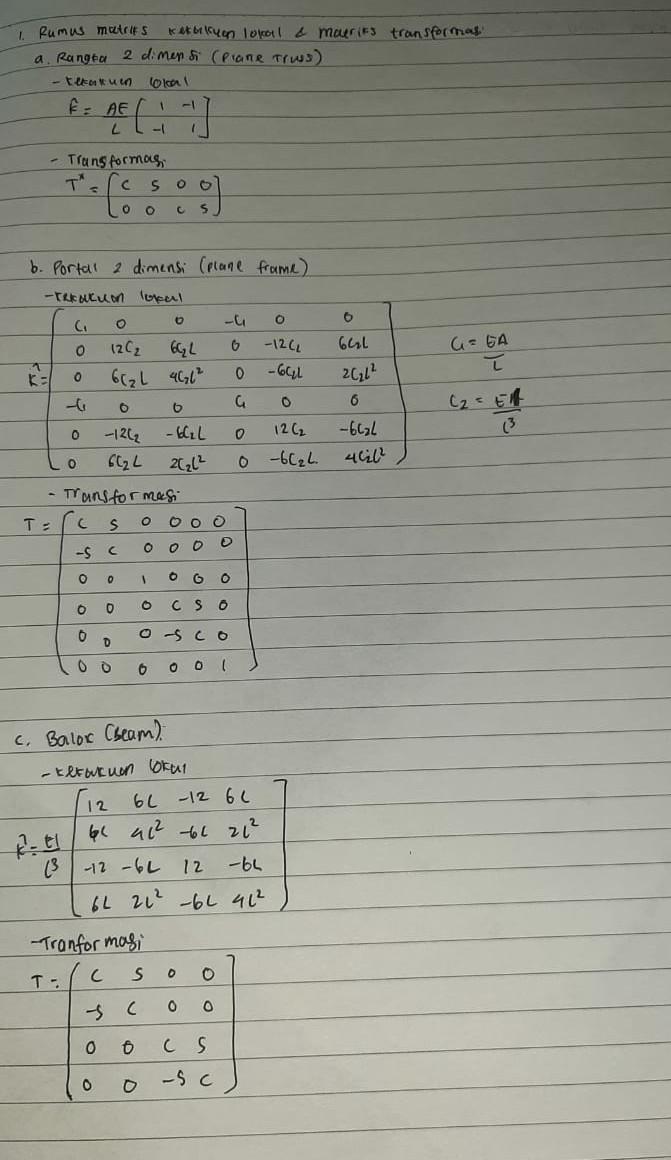 1. Rumus matriks kekakuan lokal & matriks transformasi
a. Rangka 2 dimensi (Plane Truss)
- kekakuan lokal
k̂ = AE/L [ 1 -1
-1 1 ]
- Transformasi
T* = [ C S 0 0
0 0 C S ]
b. Portal 2 dimensi (plane frame)
- kekakuan lokal
k̂ = [ C1 0 0 -C1 0 0
0 12C2 6C2L 0 -12C2 6C2L
0 6C2L 4C2L² 0 -6C2L 2C2L²
-C1 0 0 C1 0 0
0 -12C2 -6C2L 0 12C2 -6C2L
0 6C2L 2C2L² 0 -6C2L 4C2L² ]
C1 = EA/L
C2 = EI/L³
- Transformasi
T = [ C S 0 0 0 0
-S C 0 0 0 0
0 0 1 0 0 0
0 0 0 C S 0
0 0 0 -S C 0
0 0 0 0 0 1 ]
c. Balok (beam)
- kekakuan lokal
k̂ = EI/L³ [ 12 6L -12 6L
6L 4L² -6L 2L²
-12 -6L 12 -6L
6L 2L² -6L 4L² ]
- Tranformasi
T = [ C S 0 0
-S C 0 0
0 0 C S
0 0 -S C ]